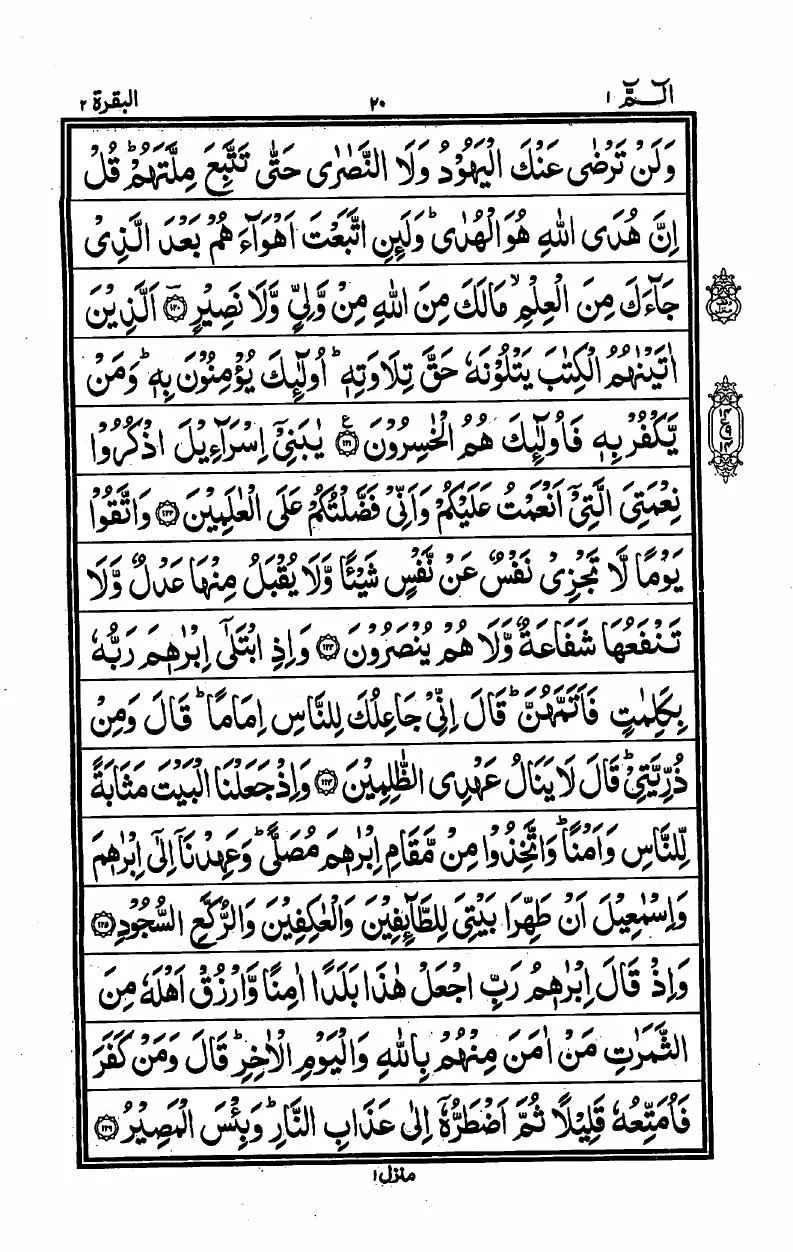 الٓـمّٓ ۱ ۲۰ البقرة ۲
وَلَنْ تَرْضٰى عَنْكَ الْيَهُوْدُ وَلَا النَّصٰرٰى حَتّٰى تَتَّبِعَ مِلَّتَهُمْ ؕ قُلْ
اِنَّ هُدَى اللّٰهِ هُوَ الْهُدٰى ؕ وَلَئِنِ اتَّبَعْتَ اَهْوَآءَهُمْ بَعْدَ الَّذِىْ
جَآءَكَ مِنَ الْعِلْمِ ۙ مَا لَكَ مِنَ اللّٰهِ مِنْ وَّلِىٍّ وَّلَا نَصِيْرٍ ۝۱۲۰ اَلَّذِيْنَ
اٰتَيْنٰهُمُ الْكِتٰبَ يَتْلُوْنَهٗ حَقَّ تِلَاوَتِهٖ ؕ اُولٰٓئِكَ يُؤْمِنُوْنَ بِهٖ ؕ وَمَنْ
يَّكْفُرْ بِهٖ فَاُولٰٓئِكَ هُمُ الْخٰسِرُوْنَ ۝۱۲۱ ع يٰبَنِىْٓ اِسْرَآءِيْلَ اذْكُرُوْا
نِعْمَتِىَ الَّتِىْٓ اَنْعَمْتُ عَلَيْكُمْ وَاَنِّىْ فَضَّلْتُكُمْ عَلَى الْعٰلَمِيْنَ ۝۱۲۲ وَاتَّقُوْا
يَوْمًا لَّا تَجْزِىْ نَفْسٌ عَنْ نَّفْسٍ شَيْئًا وَّلَا يُقْبَلُ مِنْهَا عَدْلٌ وَّلَا
تَنْفَعُهَا شَفَاعَةٌ وَّلَا هُمْ يُنْصَرُوْنَ ۝۱۲۳ وَاِذِ ابْتَلٰٓى اِبْرٰهٖمَ رَبُّهٗ
بِكَلِمٰتٍ فَاَتَمَّهُنَّ ؕ قَالَ اِنِّىْ جَاعِلُكَ لِلنَّاسِ اِمَامًا ؕ قَالَ وَمِنْ
ذُرِّيَّتِىْ ؕ قَالَ لَا يَنَالُ عَهْدِى الظّٰلِمِيْنَ ۝۱۲۴ وَاِذْ جَعَلْنَا الْبَيْتَ مَثَابَةً
لِّلنَّاسِ وَاَمْنًا ؕ وَاتَّخِذُوْا مِنْ مَّقَامِ اِبْرٰهٖمَ مُصَلًّى ؕ وَعَهِدْنَآ اِلٰٓى اِبْرٰهٖمَ
وَاِسْمٰعِيْلَ اَنْ طَهِّرَا بَيْتِىَ لِلطَّآئِفِيْنَ وَالْعٰكِفِيْنَ وَالرُّكَّعِ السُّجُوْدِ ۝۱۲۵
وَاِذْ قَالَ اِبْرٰهٖمُ رَبِّ اجْعَلْ هٰذَا بَلَدًا اٰمِنًا وَّارْزُقْ اَهْلَهٗ مِنَ
الثَّمَرٰتِ مَنْ اٰمَنَ مِنْهُمْ بِاللّٰهِ وَالْيَوْمِ الْاٰخِرِ ؕ قَالَ وَمَنْ كَفَرَ
فَاُمَتِّعُهٗ قَلِيْلًا ثُمَّ اَضْطَرُّهٗٓ اِلٰى عَذَابِ النَّارِ ؕ وَبِئْسَ الْمَصِيْرُ ۝۱۲۶
منزل۱